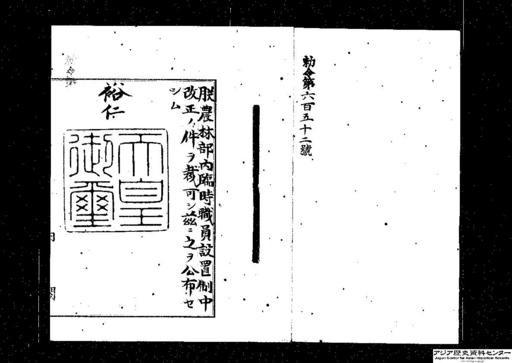 勅令第六百五十二號
朕農林部內臨時職員設置制中
改正ノ件ヲ裁可シ茲ニ之ヲ公布セ
シム
裕仁
天皇
御璽
內閣
アジア歴史資料センター
Japan Center for Asian Historical Records